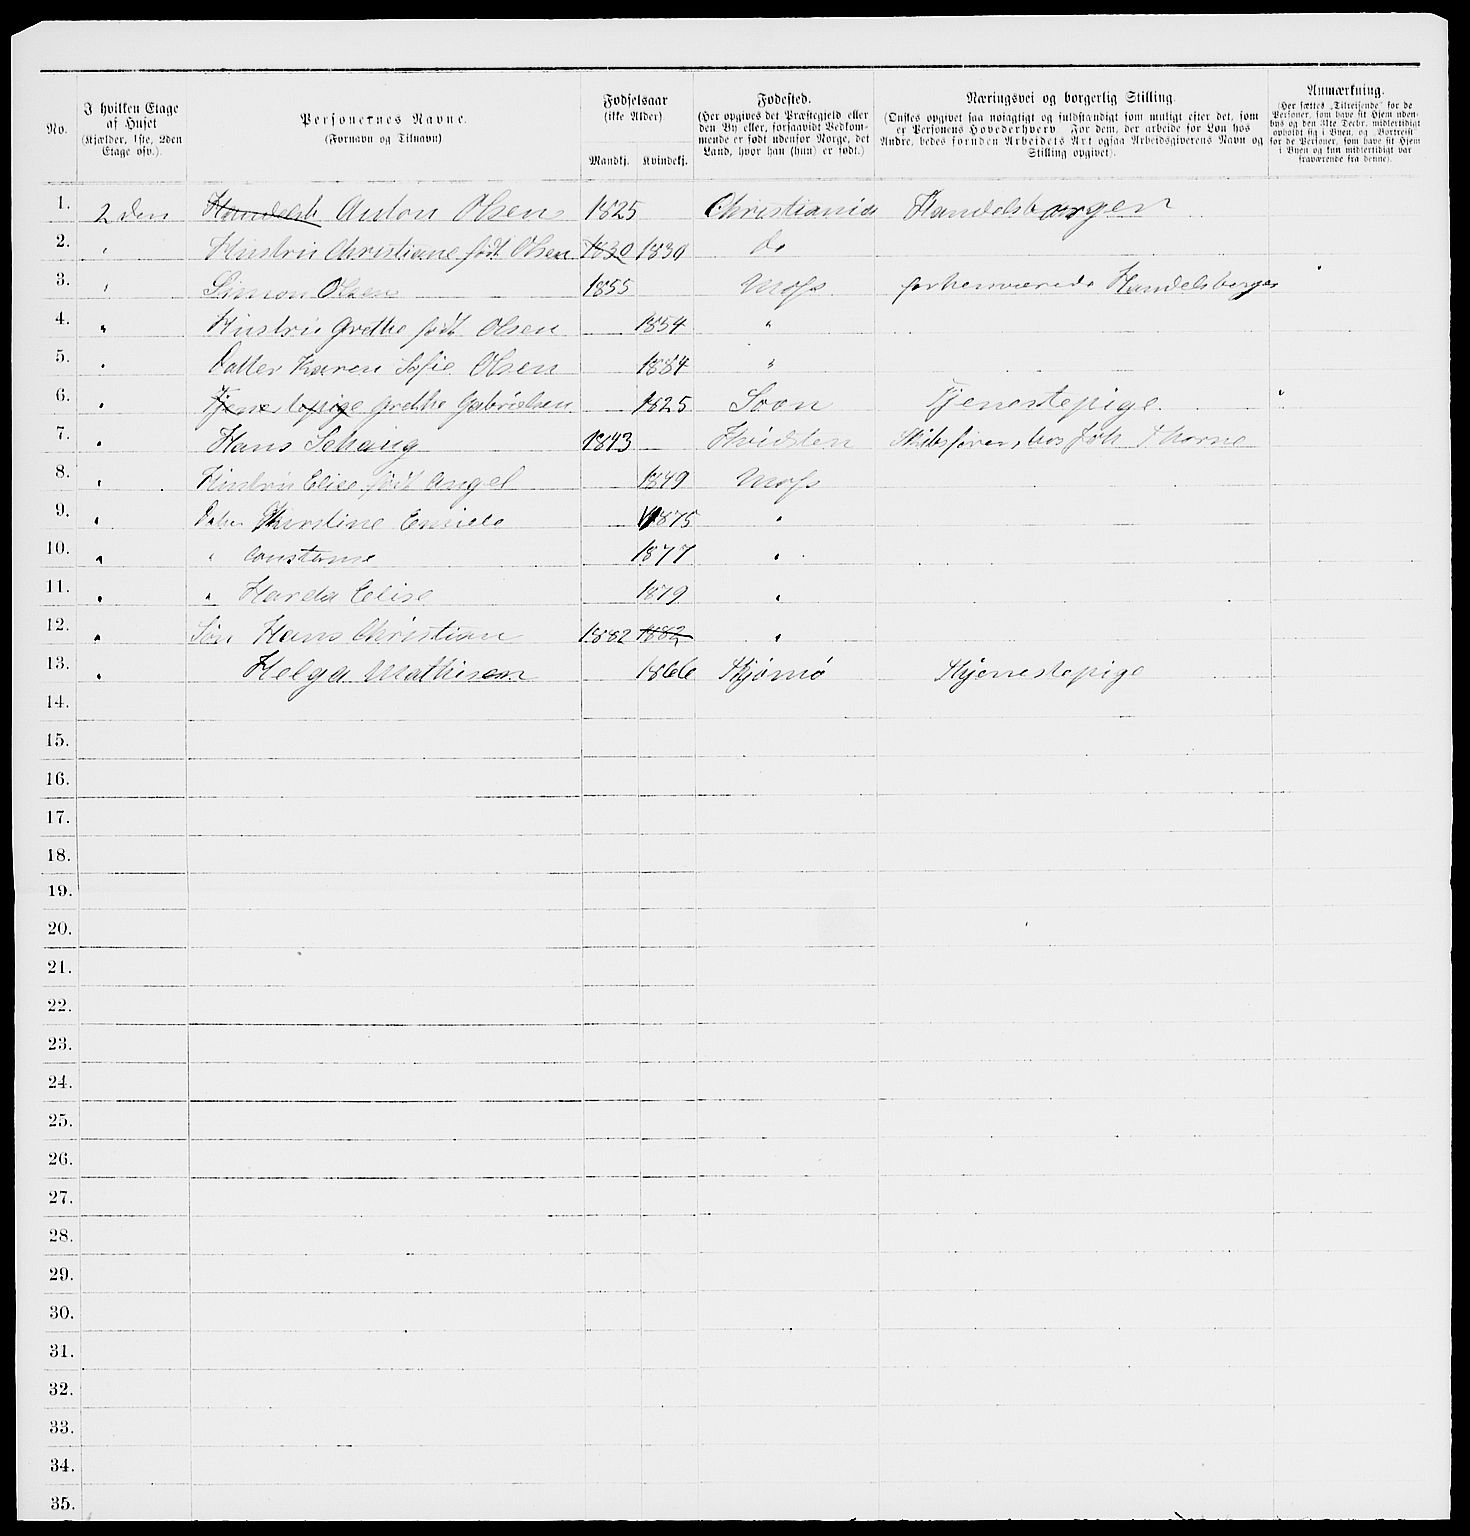 No.
I hvilken Etage af Huset (Kjælder, 1ste, 2den Etage osv.).
Personernes Navne. (Fornavn og Tilnavn)
Fødselsaar (ikke Alder) Mandkj. Kvindekj.
Fødested. (Her opgives det Præstegjeld eller den By eller, forsaavidt Bedkommende er født udenfor Norge, det Land, hvor han (hun) er født.)
Næringsvei og borgerlig Stilling. (Ønskes opgivet saa nøiagtigt og fuldstændigt som muligt efter det, som er Personens Hovederhverv. For dem, der arbeide for Løn hos Andre, bedes foruden Arbeidets Art ogsaa Arbeidsgiverens Navn og Stilling opgivet).
Anmærkning. (Her sættes „Tilreisende“ for de Personer, som have sit Hjem udenbys og den 31te Decbr. midlertidigt opholdt sig i Byen, og „Bortreist“ for de Personer, som have sit Hjem i Byen og kun midlertidigt var fraværende fra denne).
1. 2den Handelsb Anton Olsen 1825 Christiania Handelsborger
2. " Hustru Christiane født Olsen 1830 1830 do
3. " Simon Olsen 1855 Moss forhenværende Handelsborger
4. " Hustru Grethe født Olsen 1854 "
5. " Datter Karen Sofie Olsen 1884 "
6. " Tjenestepige Grethe Gabrielsen 1825 Soon Tjenestepige
7. " Hans Schaug 1843 Hvidsten Skibsfører, hos Joh Thorne
8. " Hustru Elise født Angel 1849 Moss
9. " Kirstine 1875 "
10. " " Constanse 1877 "
11. " " Harda Elise 1879 "
12. " Søn Hans Christian 1882 1882 "
13. " Helga Mathisen 1866 Tjømø Tjenestepige
14.
15.
16.
17.
18.
19.
20.
21.
22.
23.
24.
25.
26.
27.
28.
29.
30.
31.
32.
33.
34.
35.